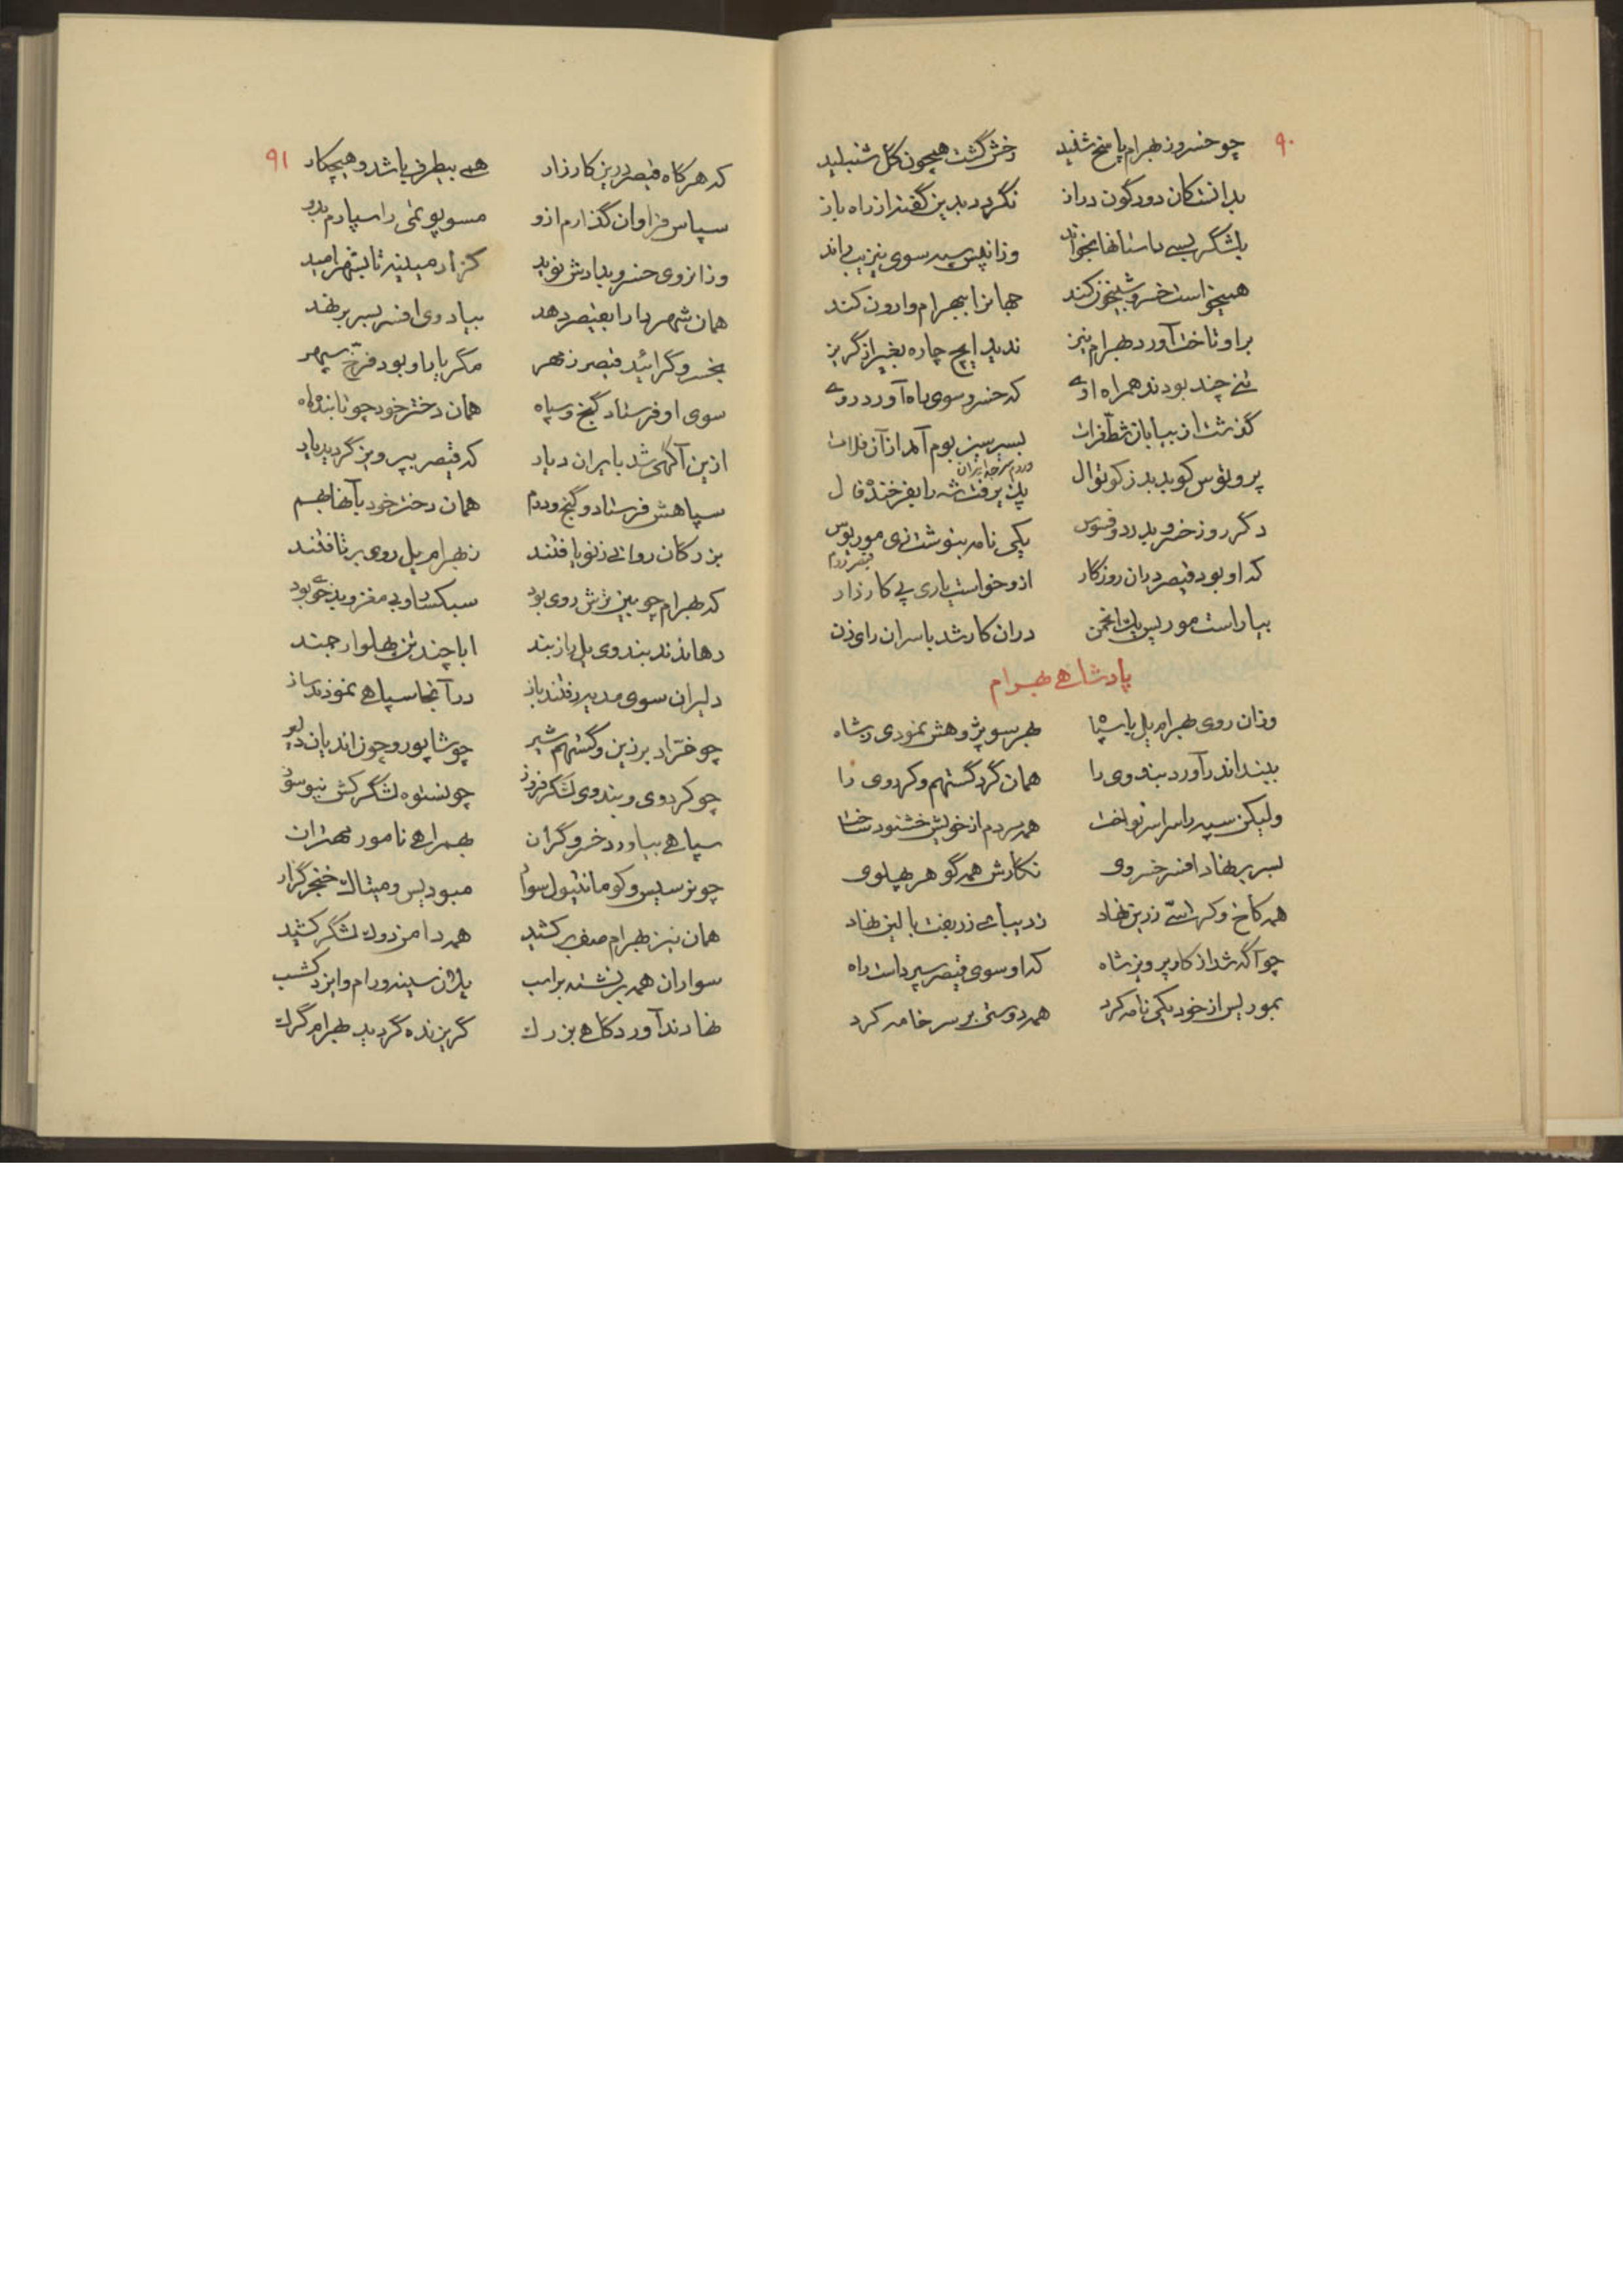 ۹۰
چو خسرو ز بهرام پاسخ شنید رخش گشت همچون گل شنبلید
بدانست کان دورگون دراز نگردد بدین گفتن از راه باز
بلشگر بسی داستانها بخواند وزانپس سپه سوی نیزیب براند
همیخواست خسرو شبیخون کند جهانرا ببهرام وارون کند
بر او تاختن آورد بهرام نیز ندید ایچ چاره بغیر از گریز
تنی چند بودند همراه اوی که خسرو سوی راه آورد روی
گذشت از بیابان شط فرات بسر سبز بوم آمد از آن فلات
پروبوس کوبد بدز کوتوال پذیرفت شه را بفرخنده فال
ورود بسرحد ایران
دگر روز خسرو بدرد و فسوس یکی نامه بنوشت زی موریوس
قیصر روم
که او بود قیصر در آن روزگار ازو خواست یاری پی کارزار
بیاراست موریس یک انجمن در آن کار شد با سران رای زن
پادشاهی بهرام
وزان روی بهرام یل با سپاه بهر سو پژوهش نمودی ز شاه
ببند اندر آورد بندوی را همان گرد گستهم و کردوی را
ولیکن سپه را سراسر نواخت همه مردم از خویش خشنود ساخت
بسر بر نهاد افسر خسروی نگارش همه گوهر پهلوی
همه کاخ و کرسی زرین نهاد ز دیبای زربفت بالین نهاد
چو آگه شد از کار پرویز شاه که او سوی قیصر سپرداست راه
بموریس از خود یکی نامه کرد همه دوستی بر سر خامه کرد
۹۱
که هرگاه قیصر درین کارزار همی بیطرف باشد و هیچکار
سپاس فراوان گذارم ازو مسوپوتمی را سپارم بدو
وزانروی خسرو بدادش نوید گزارم میدیه تا بشهر امید
همان شهر دارا بقیصر دهد بیاد وی افسر بسر بر نهد
بخسرو گرائید قیصر ز مهر مگر یار او بود فرخ سپهر
سوی او فرستاد گنج و سپاه همان دختر خود چو تابنده ماه
ازین آگهی شد بایران دیار که قیصر بپرویز گردید یار
سپاهش فرستاد و گنج و درم همان دختر خود بآنها بهم
بزرگان روانی ز نو یافتند ز بهرام یل روی برتافتند
که بهرام چوبین ترش روی بود سبکسار و بی مغز و بدخوی بود
رهاندند بندوی یل را ز بند ابا چند تن پهلو ارجمند
دلیران سوی مدیه رفتند باز در آنجا سپاهی نمودند ساز
چو خراد برزین و گستهم شیر چو شاپور و چون اندیان دلیر
چو کردوی و بندوی لشگر فروز چو نستوه لشگرکش نیوسوز
سپاهی بیاورد خسرو گران بهمراهی نامور مهتران
چو نرسیس و کومانتیول سوار مبودیس و میتاک خنجرگزار
همان نیز بهرام صف برکشید همه دامن رود لشگر کشید
سواران همه برنشسته براسب یلان سینه و رام و ایزدگشسب
نهادند آوردگاهی بزرگ گریزنده گردید بهرام گرگ